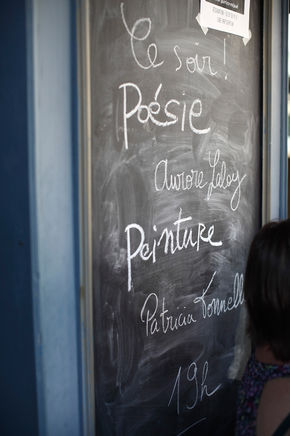 Ce soir !
Poésie
Aurore Laloy
Peinture
Patricia Vonnell
19h